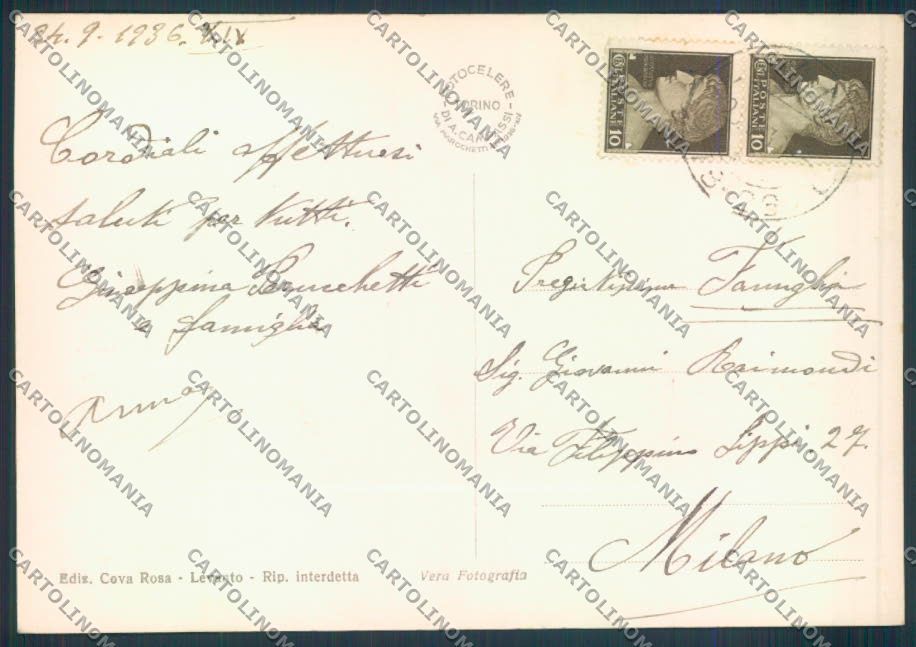 24.9.1936. XIV
FOTOCELERE
TORINO
DI A. CAMPASSI
VIA MAROCHETTI
POSTE ITALIANE
10
POSTE ITALIANE
10
Cordiali affettuosi
saluti per tutti.
Giuseppina
e famiglia
Pregiatissima Famiglia
Sig. Giovanni Raimondi
Via Filippino Lippi. 27.
Milano
Ediz. Cova Rosa - Levanto - Rip. interdetta
Vera Fotografia
CARTOLINOMANIA